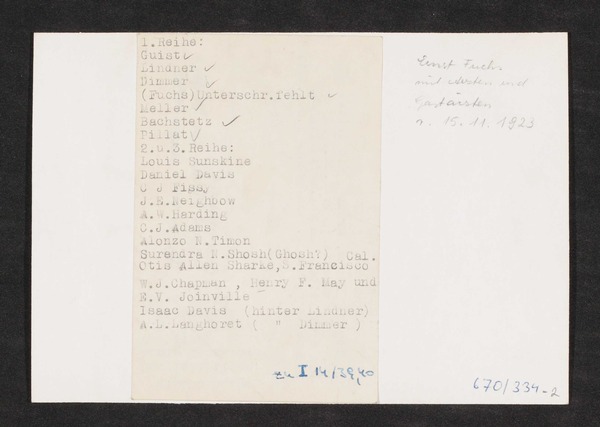 1.Reihe:
Guist ✓
Lindner ✓
Dimmer ✓
(Fuchs)Unterschr.fehlt ✓
Meller ✓
Bachstetz ✓
Pillat ✓
2.u.3.Reihe:
Louis Sunskine
Daniel Davis
C J Fissy
J.H.Neighbow
A.W.Harding
C.J.Adams
Alonzo N.Timon
Surendra N.Shosh(Ghosh?) Cal.
Otis Allen Sharke,S.Francisco
W.J.Chapman , Henry F. May und
E.V. Joinville
Isaac Davis (hinter Lindner)
A.L.Langhoret ( " Dimmer )
zu I 14/39,40
Ernst Fuchs
mit Ärzten und
Gastärzten
v. 15. 11. 1923
670/334-2